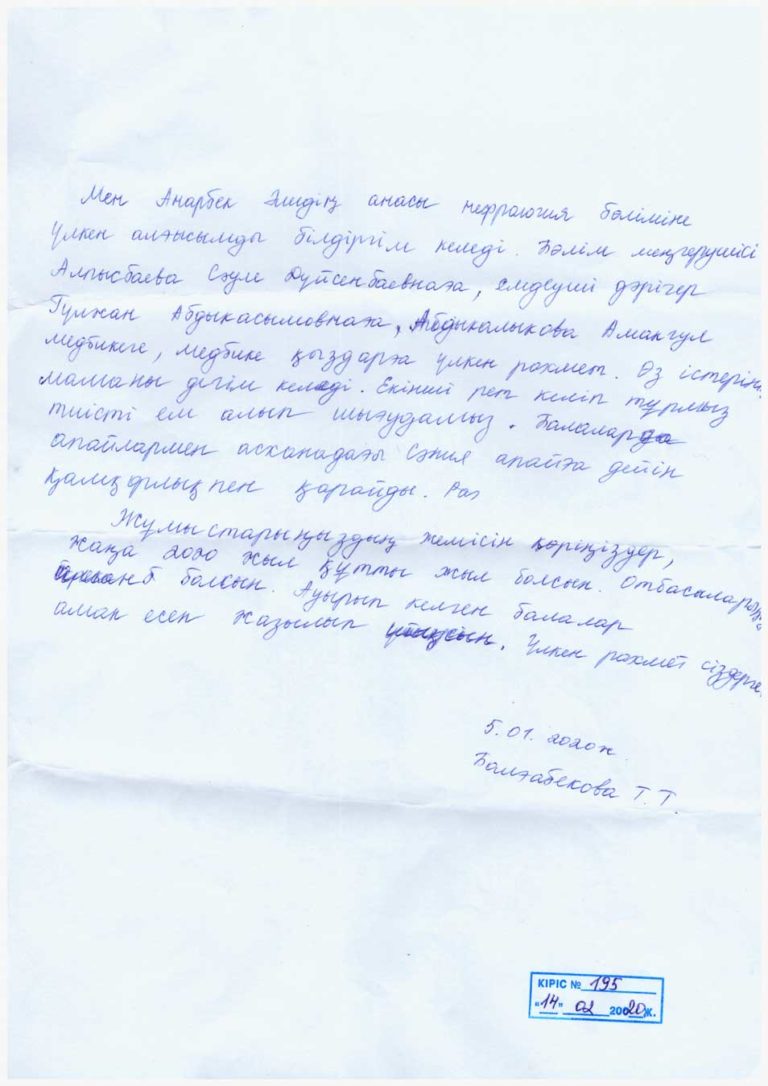 Мен Анарбек Әлидің анасы нефрология бөліміне
үлкен алғысымды білдіргім келеді. Бөлім меңгерушісі
Алпысбаева Сәуле Дүйсенбаевнаға, емдеуші дәрігер
Гүлжан Абдыкасымовнаға, Абдыкалыкова Амангул
медбикеге, медбике қыздарға үлкен рахмет. Өз істерінің
маманы дегім келеді. Екінші рет келіп тұрмыз
тиісті ем алып шығудамыз. Балалар
апайлармен асханадағы Сәния апайға дейін
қамқорлықпен қарайды. Раз
Жұмыстарыңыздың жемісін көріңіздер,
жаңа 2020 жыл құтты жыл болсын. Отбасыларыңыз
аман болсын. Ауырып келген балалар
аман есен жазылып шықсын. Үлкен рахмет сіздерге.
5.01.2020ж
Балтабекова Т.Т
КІРІС № 195
"14" 02 20020ж.